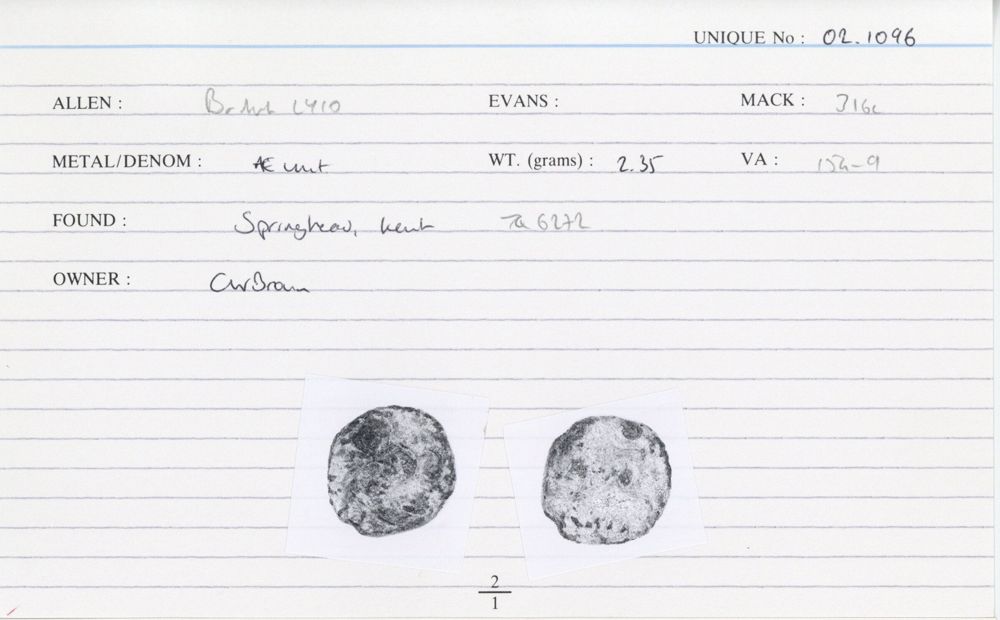 UNIQUE No : 02.1096
ALLEN : British LX10 EVANS : MACK : 316c
METAL/DENOM : Æ unit WT. (grams) : 2.35 VA : 154-9
FOUND : Springhead, Kent TQ 6272
OWNER : CW Brown
2
1